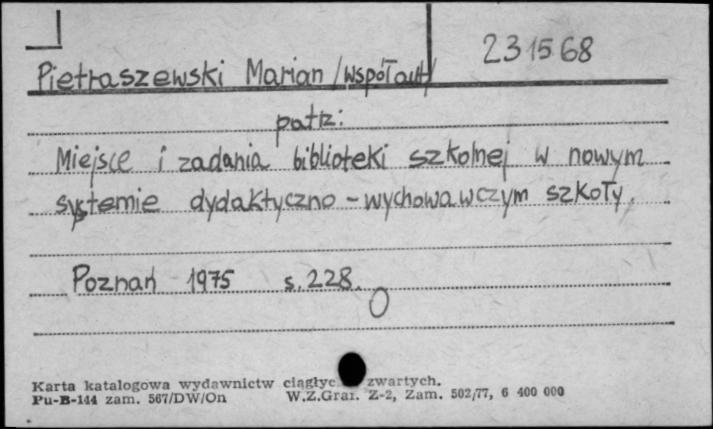 231568
Pietraszewski Marian /współaut/
patrz:
Miejsce i zadania biblioteki szkolnej w nowym
systemie dydaktyczno-wychowawczym szkoły.
Poznań 1975 s. 228.
Karta katalogowa wydawnictw ciągłyc zwartych.
Pu-B-144 zam. 567/DW/On W.Z.Graf. Z-2, Zam. 502/77, 6 400 000